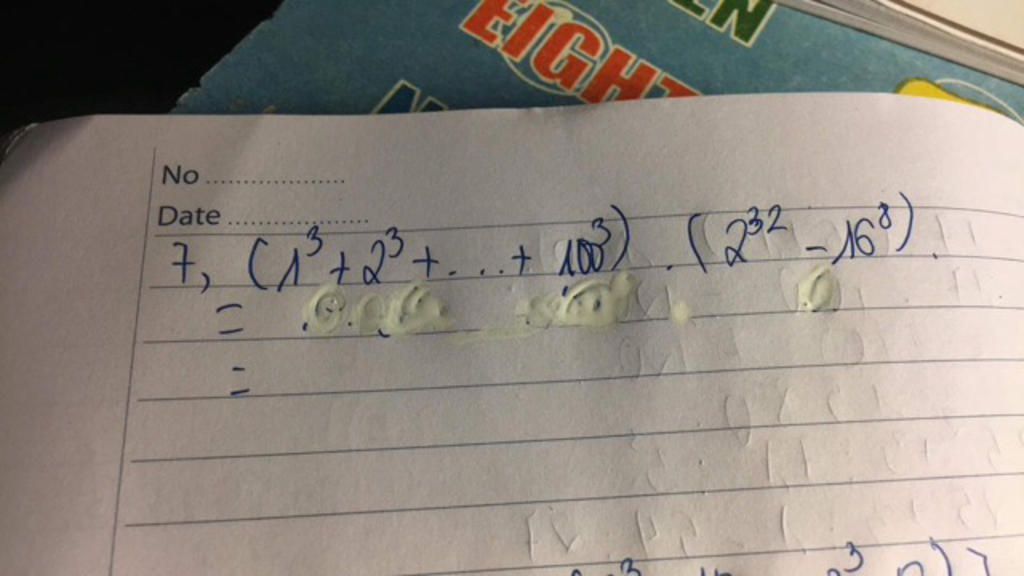 EN
EIGHT
No ....................
Date ....................
7, (1³ + 2³ + ... + 100³) . (2³² - 16⁸) .
=
=